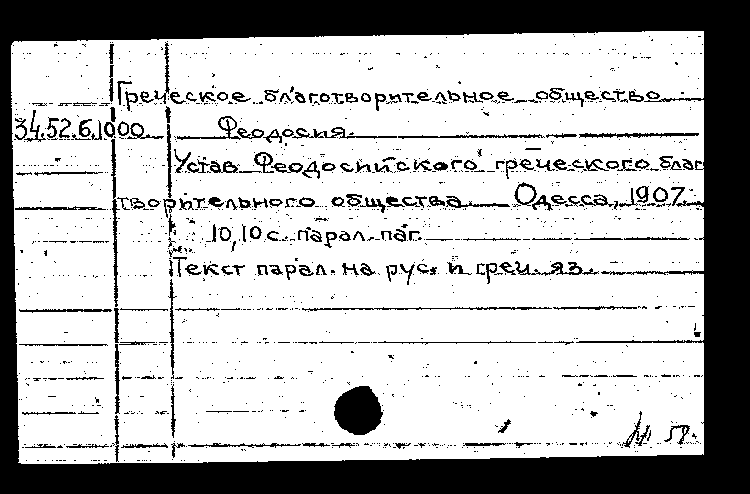 Греческое благотворительное общество.
34.52.6.1000 Феодосия.
Устав Феодосийского греческого благо
творительного общества. Одесса, 1907.
10,10 с. парал. паг.
Текст парал. на рус. и греч. яз.
58.